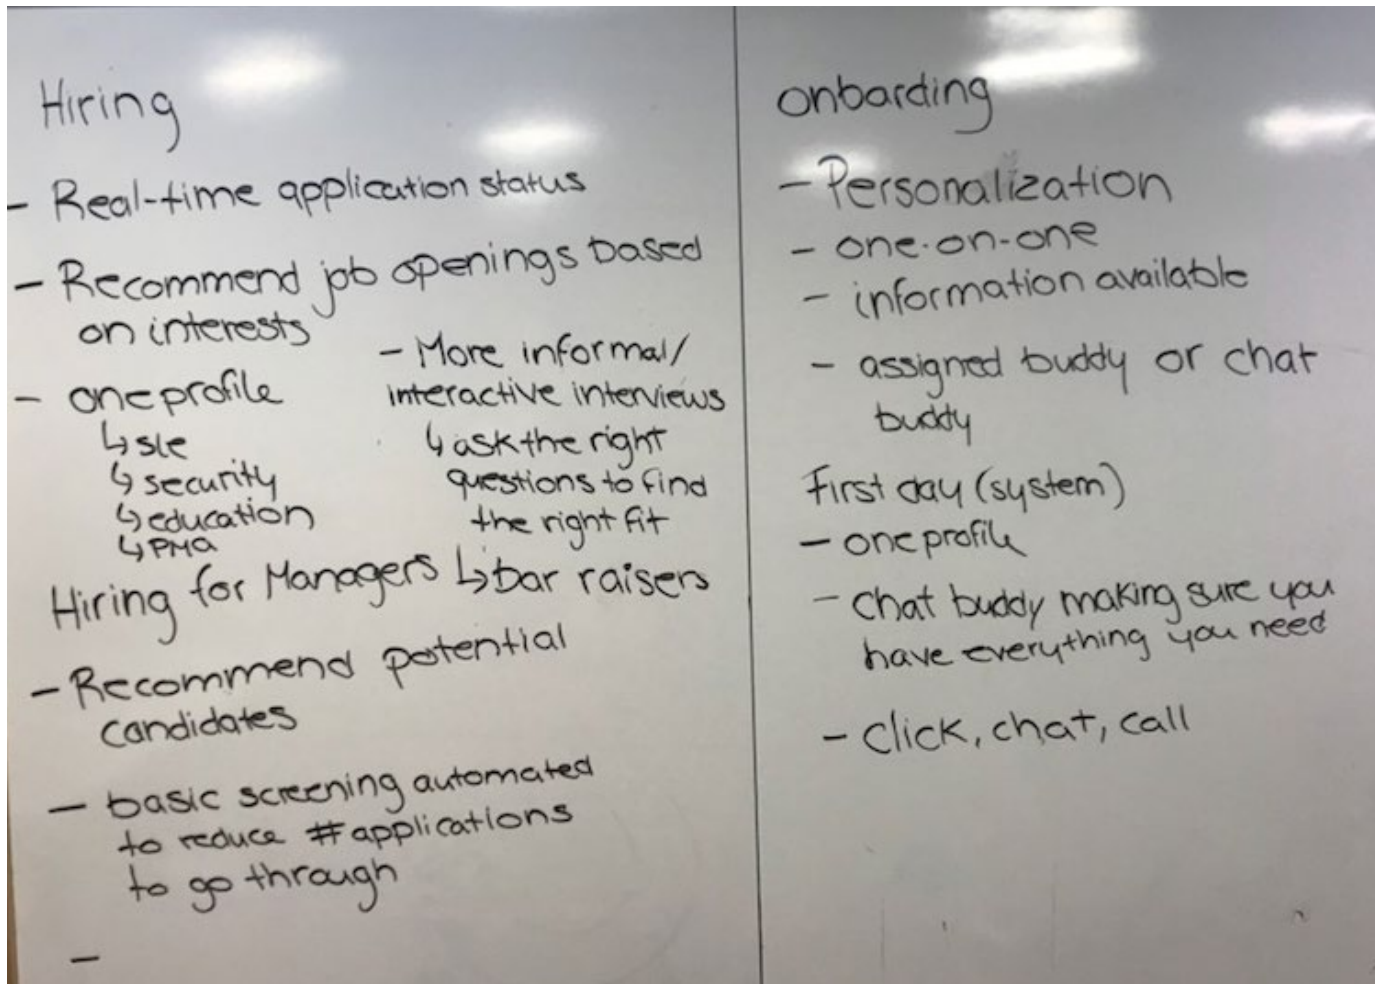 Hiring
- Real-time application status
- Recommend job openings based
on interests
- one profile
↳ sle
↳ security
↳ education
↳ PMA
- More informal/
interactive interviews
↳ ask the right
questions to find
the right fit
↳ bar raisers
Hiring for Managers
- Recommend potential
candidates
- basic screening automated
to reduce #applications
to go through
-
onbarding
- Personalization
- one-on-one
- information available
- assigned buddy or chat
buddy
First day (system)
- one profile
- chat buddy making sure you
have everything you need
- click, chat, call